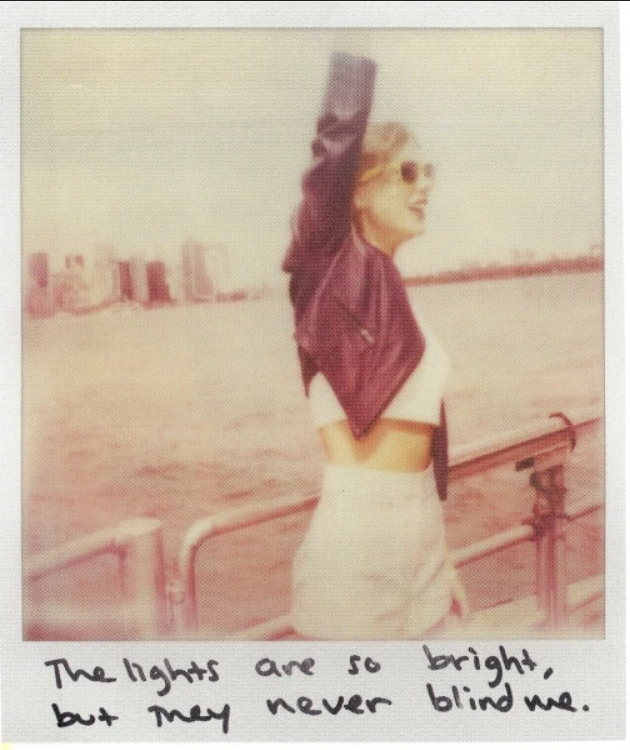 The lights are so bright,
but they never blind me.